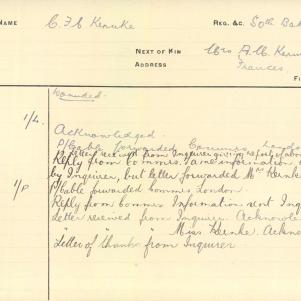 NAME C F C Kernke REG. &C. 50th Bat
NEXT OF KIN Mrs A. M. Kern
ADDRESS Frances
Wounded.
1/4. Acknowledged.
P/Cable forwarded Commrs. London
Letter received from Inquirer giving report of above
Reply from Commrs. Same information
by Inquirer, but letter forwarded Mrs Kernke
1/P P/Cable forwarded Commrs. London.
Reply from Commrs Information not Ing
Letter received from Inquirer. Acknowle
" " " Miss Kernke. Acknow
"Letter of Thanks" from Inquirer